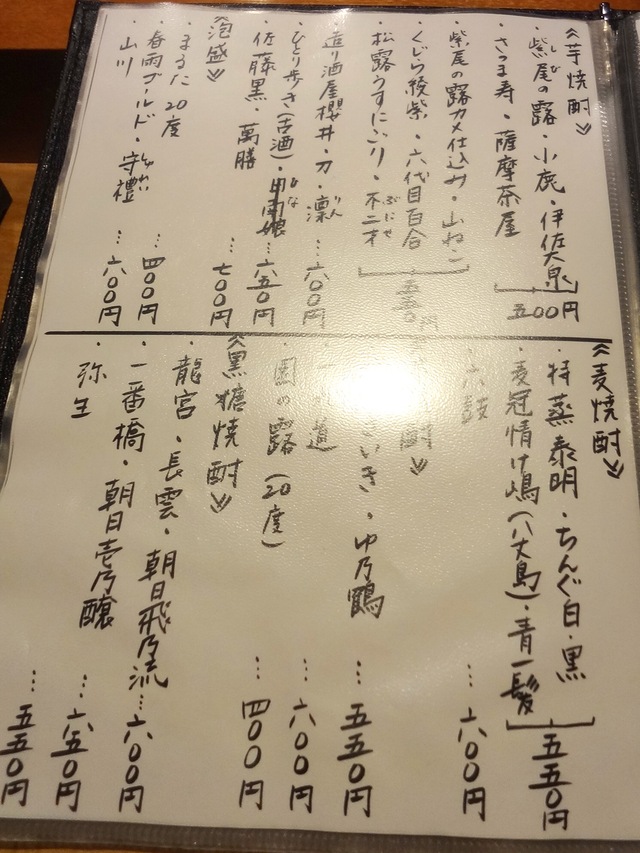 ≪芋焼酎≫
・紫尾の露・小鹿・伊佐大泉
しび
・さつま寿・薩摩茶屋
五〇〇円
・紫尾の露カメ仕込み・山ねこ
・くじら綾紫・六代目百合
・松露うすにごり・不二才
ぶにせ
五五〇円
・造り酒屋櫻井・刀・凛 … 六〇〇円
りん
・ひとり歩き(古酒)・甲南娘 … 六五〇円
・佐藤黒・萬膳 … 七〇〇円
≪泡盛≫
・まるた20度 … 四〇〇円
・春雨ゴールド・守禮 … 六〇〇円
・山川
≪麦焼酎≫
・特蒸泰明・ちんぐ白・黒
・麦冠情け嶋(八丈島)・青一髪
五五〇円
六鼓 … 六〇〇円
酎≫
いき・ゆ乃鶴 … 五五〇円
道 … 六〇〇円
・園の露(20度) … 四〇〇円
≪黒糖焼酎≫
・龍宮・長雲・朝日飛乃流 … 六〇〇円
・一番橋・朝日壱乃醸 … 六五〇円
・弥生 … 五五〇円